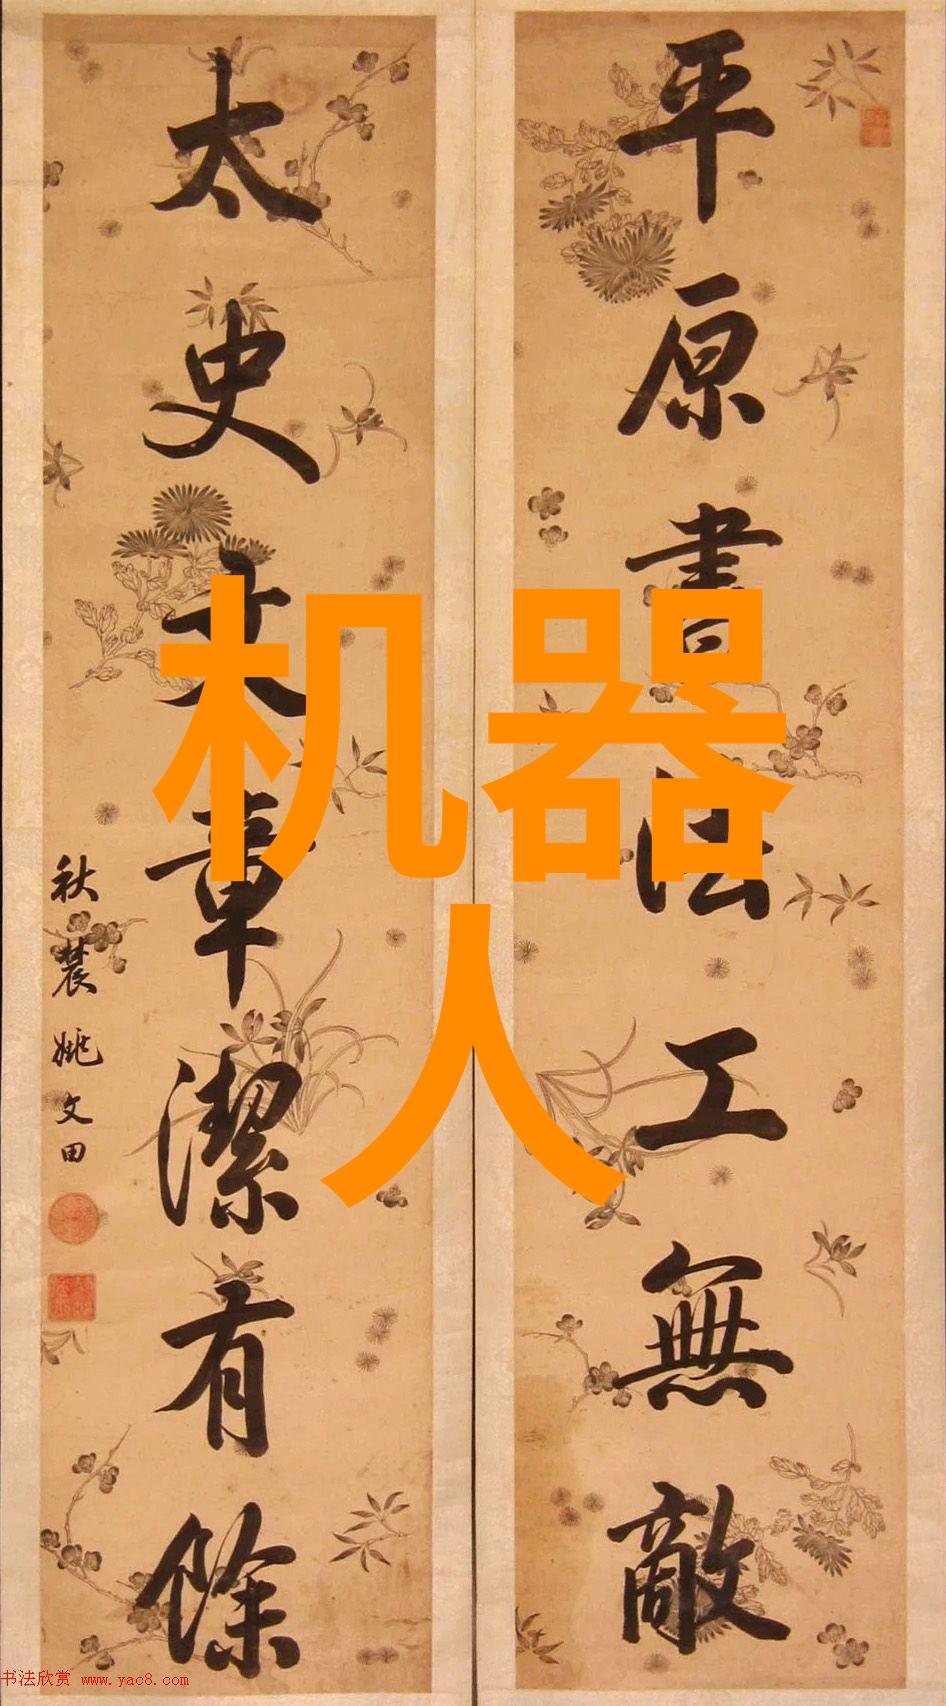 平原書法工無敵
太史文章潔有餘
秋農姚文田
机器
人
书法欣赏 www.yac8.com